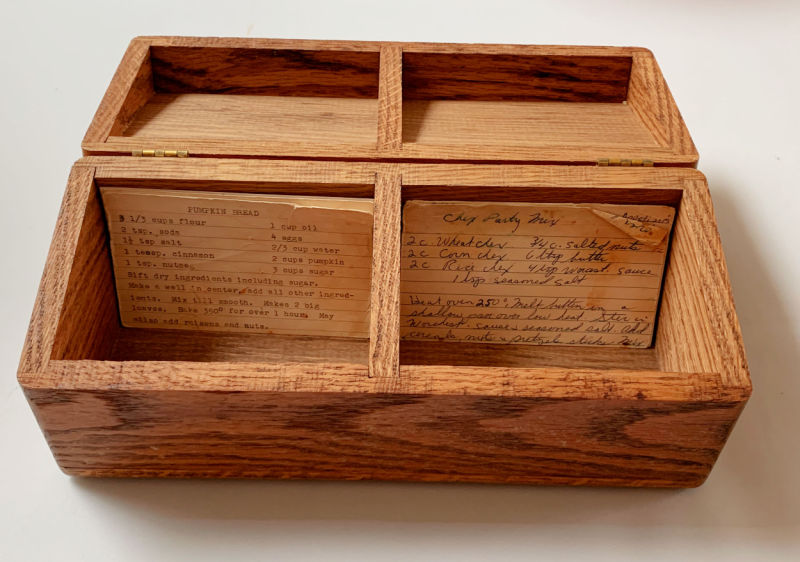 PUMPKIN BREAD
3 1/3 cups flour 1 cup oil
2 tsp. soda 4 eggs
1½ tsp salt 2/3 cup water
1 teasp. cinnamon 2 cups pumpkin
1 tsp. nutmeg 3 cups sugar
Sift dry ingredients including sugar.
Make a well in center, add all other ingred-
ients. Mix till smooth. Makes 2 big
loaves. Bake 350° for over 1 hour. May
also add raisens and nuts.
Chex Party Mix
2 c. Wheat chex 3/4 c. salted nuts
2 c Corn chex 6 tbsp butter
2 c Rice chex 4 tsp worcest. sauce
1 tsp seasoned salt
Heat oven 250°. Melt butter in a
shallow pan over low heat. Stir in
Worchest. sauce & seasoned salt. Add
cereals, nuts & pretzel sticks. Mix